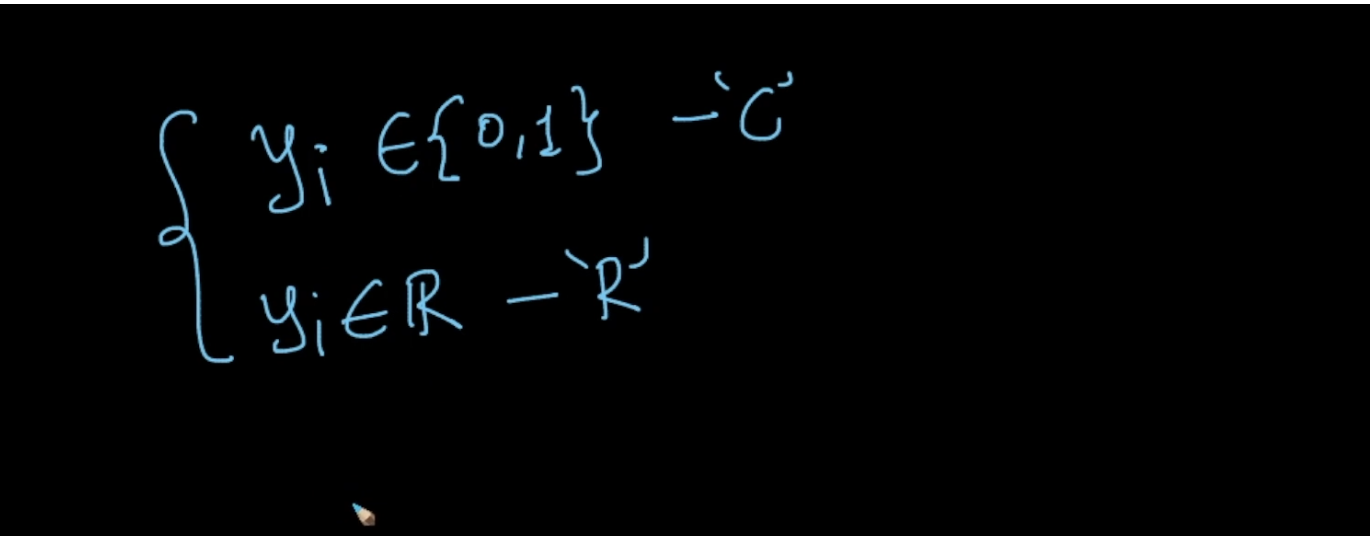 yᵢ ∈ {0,1} - 'C'
yᵢ ∈ ℝ - 'R'